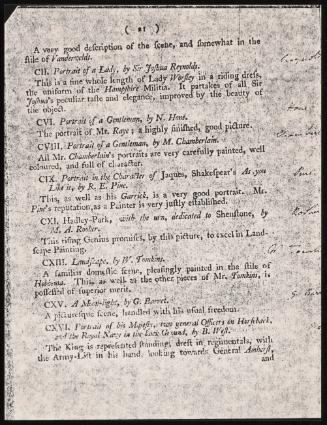 ( 21 )
A very good description of the scene, and somewhat in the
stile of Vandervelt.
CII. Portrait of a Lady, by Sir Joshua Reynolds.
This is a fine whole length of Lady Worsley in a riding dress,
the uniform of the Hampshire Militia. It partakes of all Sir
Joshua's peculiar taste and elegance, improved by the beauty of
the object.
CVI. Portrait of a Gentleman, by N. Hone.
The portrait of Mr. Raye; a highly finished, good picture.
CVIII. Portrait of a Gentleman, by M. Chamberlain.
All Mr. Chamberlain's portraits are very carefully painted, well
coloured, and full of character.
CIX. Portrait in the Character of Jaques, Shakespear's As you
Like it, by R. E. Pine.
This, as well as his Garrick, is a very good portrait. Mr.
Pine's reputation, as a Painter is very justly established.
CXI. Hadley-Park, with the urn, dedicated to Shenstone, by
M. A. Rooker.
This rising Genius promises, by this picture, to excel in Land-
scape Painting.
CXIII. Landscape, by W. Tomkins.
A familiar domestic scene, pleasingly painted in the stile of
Hobbima. This, as well as the other pieces of Mr. Tomkins, is
possessed of superior merit.
CXV. A Moon-light, by G. Barret.
A picturesque scene, handled with his usual freedom.
CXVI. Portrait of his Majesty, two general Officers on Horseback,
and the Royal Navy in the back Ground, by B. West.
The King is represented standing, drest in regimentals, with
the Army-List in his hand, looking towards General Amherst,
and